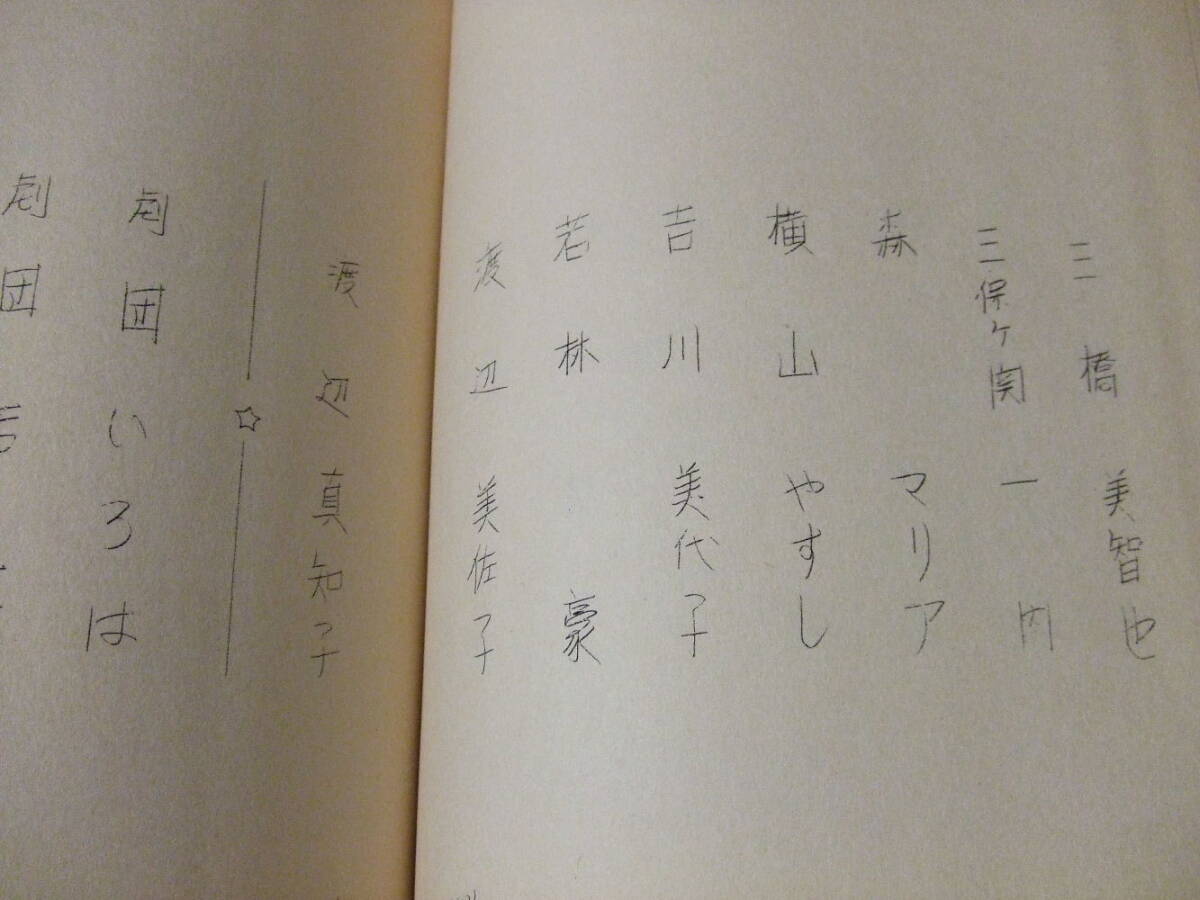 三橋 美智也
三保ヶ関 一門
森 マリア
横山 やすし
吉川 美代子
若林 豪
渡辺 美佐子
渡辺 真知子
☆
劇団いろは
劇団